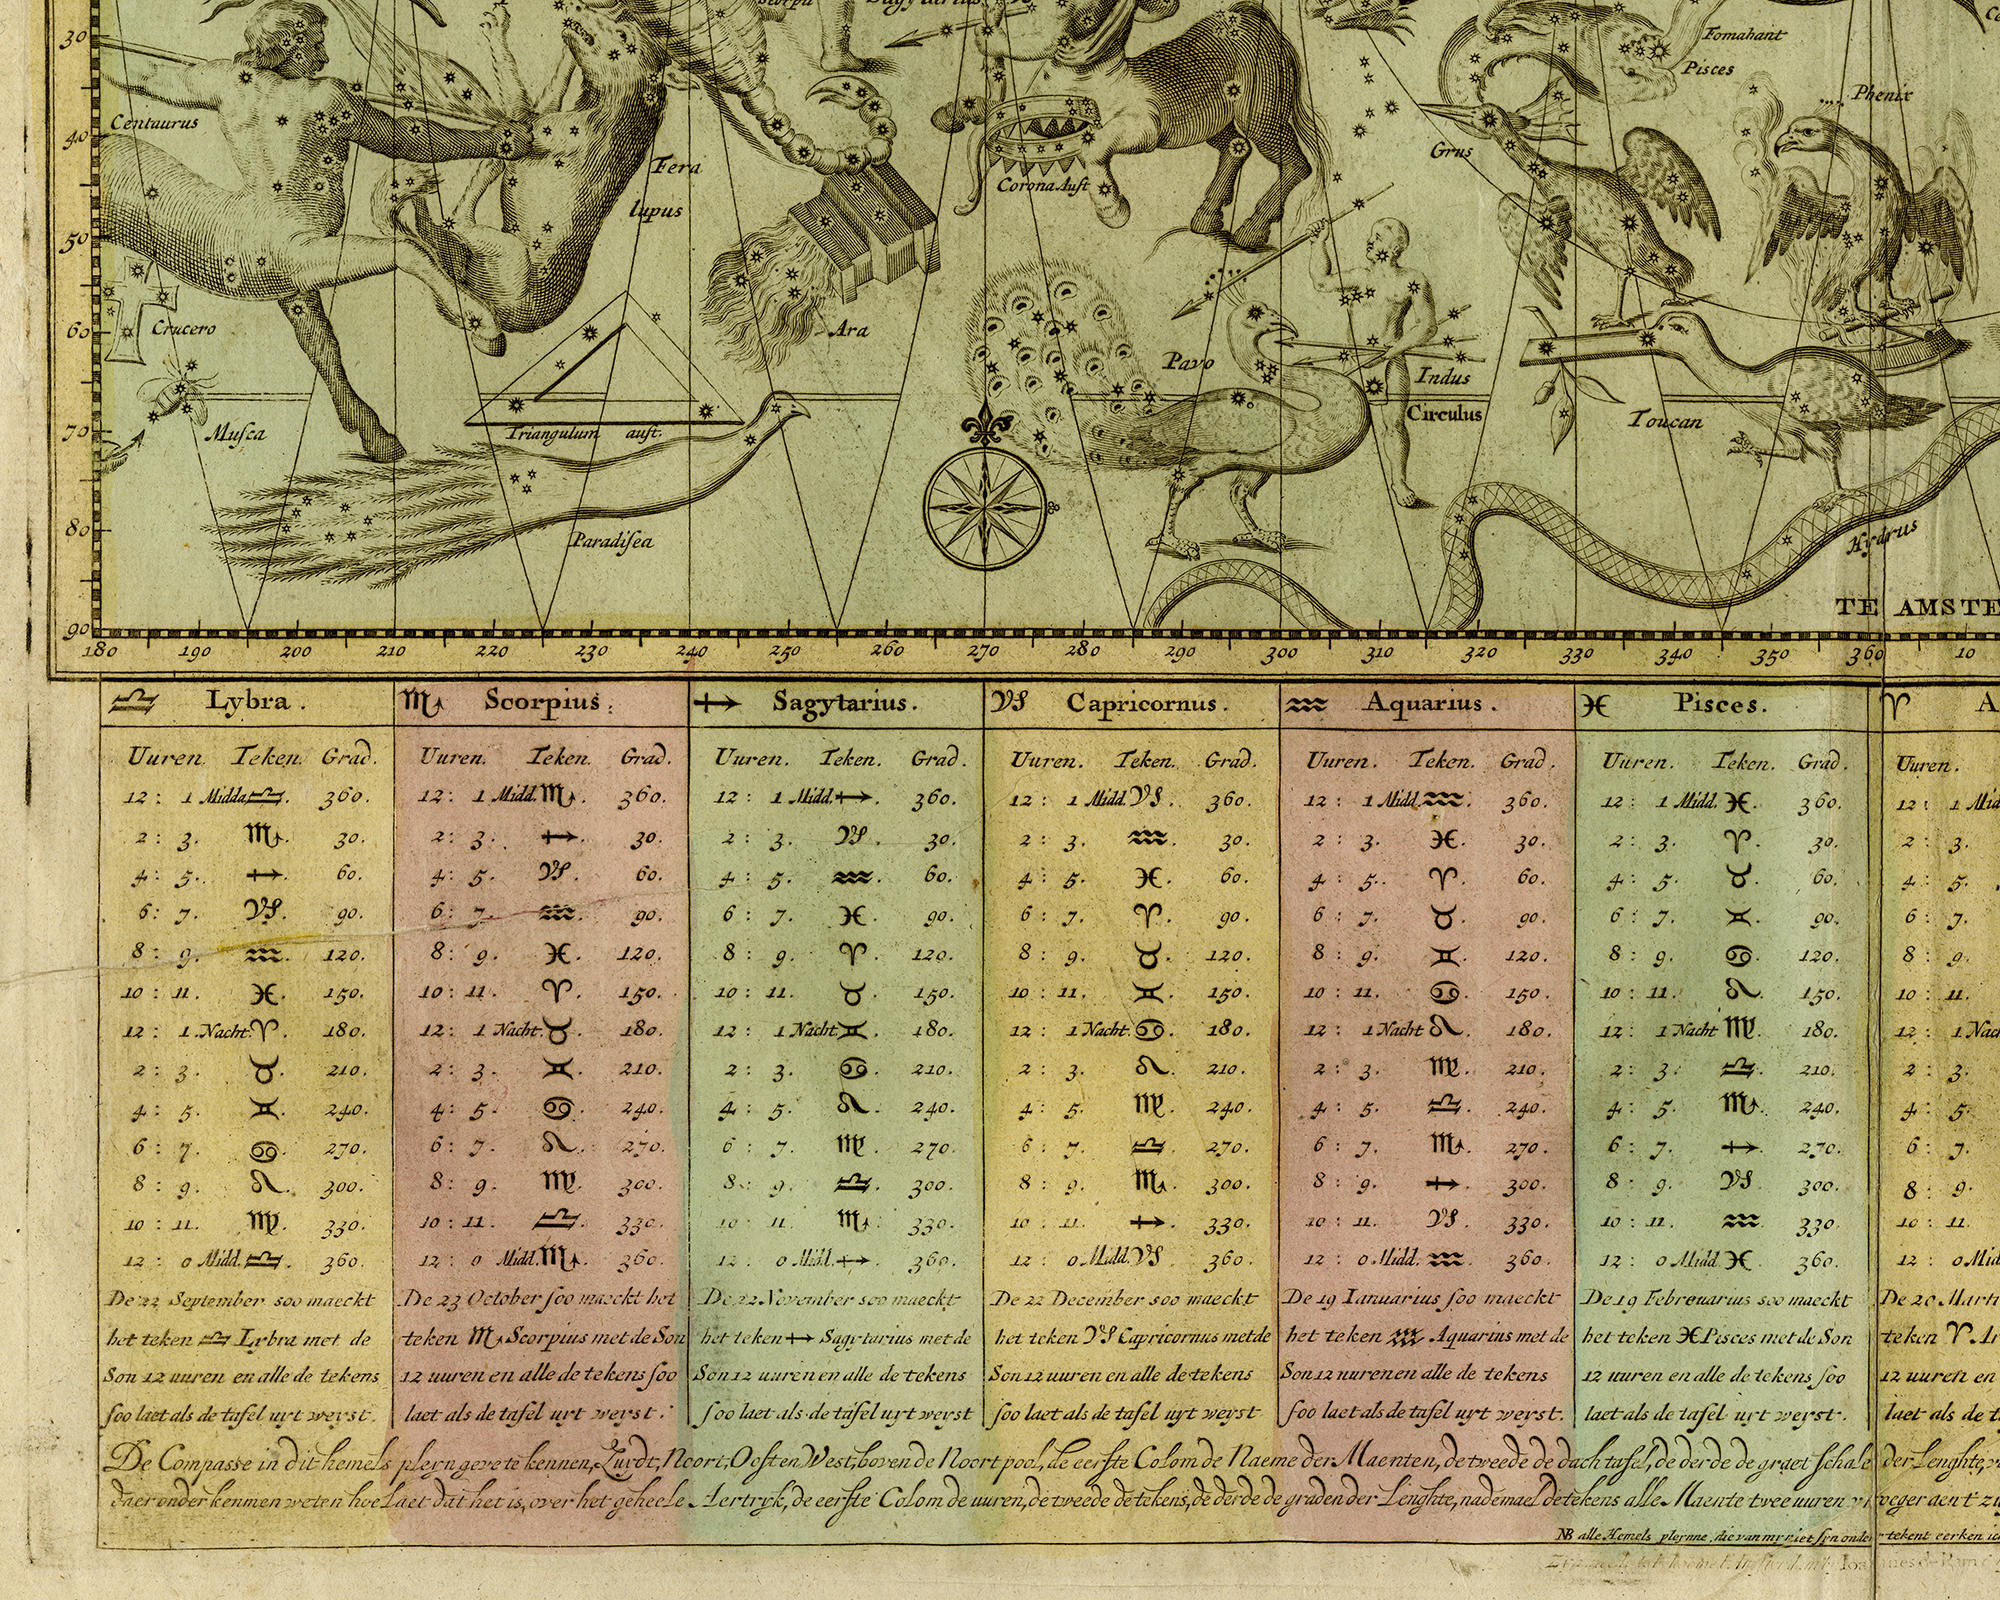 Scorpii
Sagittarius
30
Fomahant
Pisces
Phenix
Centaurus
40
Fera
Grus
Corona Aust
lupus
50
60
Crucero
Ara
Pavo
Indus
Circulus
70
Musca
Triangulum aust.
Toucan
80
Paradisea
Hydrus
TE AMSTE
90
180 190 200 210 220 230 240 250 260 270 280 290 300 310 320 330 340 350 360 10
♎ Lybra. ♏ Scorpius. ♐ Sagytarius. ♑ Capricornus. ♒ Aquarius. ♓ Pisces. ♈ A
Uuren. Teken. Grad. Uuren. Teken. Grad. Uuren. Teken. Grad. Uuren. Teken. Grad. Uuren. Teken. Grad. Uuren. Teken. Grad. Uuren.
12: 1 Midda ♎. 360. 12: 1 Midd. ♏. 360. 12: 1 Midd. ♐. 360. 12: 1 Midd. ♑. 360. 12: 1 Midd. ♒. 360. 12: 1 Midd. ♓. 360. 12: 1 Mid
2: 3. ♏. 30. 2: 3. ♐. 30. 2: 3. ♑. 30. 2: 3. ♒. 30. 2: 3. ♓. 30. 2: 3. ♈. 30. 2: 3.
4: 5. ♐. 60. 4: 5. ♑. 60. 4: 5. ♒. 60. 4: 5. ♓. 60. 4: 5. ♈. 60. 4: 5. ♉. 60. 4: 5.
6: 7. ♑. 90. 6: 7. ♒. 90. 6: 7. ♓. 90. 6: 7. ♈. 90. 6: 7. ♉. 90. 6: 7. ♊. 90. 6: 7.
8: 9. ♒. 120. 8: 9. ♓. 120. 8: 9. ♈. 120. 8: 9. ♉. 120. 8: 9. ♊. 120. 8: 9. ♋. 120. 8: 9.
10: 11. ♓. 150. 10: 11. ♈. 150. 10: 11. ♉. 150. 10: 11. ♊. 150. 10: 11. ♋. 150. 10: 11. ♌. 150. 10: 11.
12: 1. Nacht. ♈. 180. 12: 1 Nacht. ♉. 180. 12: 1 Nacht. ♊. 180. 12: 1 Nacht. ♋. 180. 12: 1 Nacht ♌. 180. 12: 1 Nacht ♍. 180. 12: 1 Nac
2: 3. ♉. 210. 2: 3. ♊. 210. 2: 3. ♋. 210. 2: 3. ♌. 210. 2: 3. ♍. 210. 2: 3. ♎. 210. 2: 3.
4: 5. ♊. 240. 4: 5. ♋. 240. 4: 5. ♌. 240. 4: 5. ♍. 240. 4: 5. ♎. 240. 4: 5. ♏. 240. 4: 5.
6: 7. ♋. 270. 6: 7. ♌. 270. 6: 7. ♍. 270. 6: 7. ♎. 270. 6: 7. ♏. 270. 6: 7. ♐. 270. 6: 7.
8: 9. ♌. 300. 8: 9. ♍. 300. 8: 9. ♎. 300. 8: 9. ♏. 300. 8: 9. ♐. 300. 8: 9. ♑. 300. 8: 9.
10: 11. ♍. 330. 10: 11. ♎. 330. 10: 11. ♏. 330. 10: 11. ♐. 330. 10: 11. ♑. 330. 10: 11. ♒. 330. 10: 11.
12: 0 Midd. ♎. 360. 12: 0 Midd. ♏. 360. 12: 0 Midd. ♐. 360. 12: 0 Midd. ♑. 360. 12: 0 Midd. ♒. 360. 12: 0 Midd. ♓. 360. 12: 0 Mid
De 22 September soo maeckt De 23 October soo maeckt het De 22 November soo maeckt De 22 December soo maeckt De 19 Ianuarius soo maeckt De 19 Februarius soo maeckt De 20 Marti
het teken ♎ Lybra met de teken ♏ Scorpius met de Son het teken ♐ Sagytarius met de het teken ♑ Capricornus met de het teken ♒ Aquarius met de het teken ♓ Pisces met de Son teken ♈ Ar
Son 12 uuren en alle de tekens 12 uuren en alle de tekens soo Son 12 uuren en alle de tekens Son 12 uuren en alle de tekens Son 12 uuren en alle de tekens 12 uuren en alle de tekens soo 12 uuren en
soo laet als de tafel uyt weyst. laet als de tafel uyt weyst. soo laet als de tafel uyt weyst soo laet als de tafel uyt weyst soo laet als de tafel uyt weyst. laet als de tafel uyt weyst. laet als de t
De Compasse in dit hemels pleyn geve te kennen, Zuydt, Noort, Oost en West, boven de Noort pool, de eerste Colom de Naeme der Maenten, de tweede de dach tafel, de derde de graet schale der Lenghte,
daer onder kennen weten hoe laet dat het is, over het geheele Aertryk, de eerste Colom de uuren, de tweede de tekens, de derde de graden der Lenghte, nademael de tekens alle Maente twee uuren vroeger aent
NB alle Hemels pleyne, die van my niet syn onder tekent